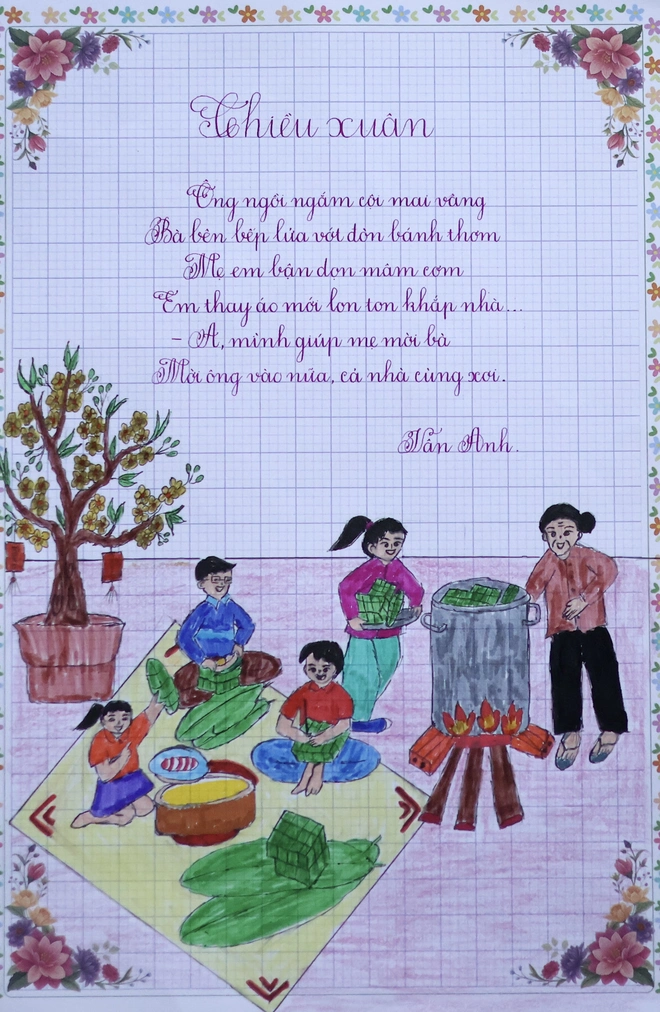 Chiều xuân
Ông ngồi ngắm cội mai vàng
Bà bên bếp lửa vớt đòn bánh thơm
Mẹ em bận dọn mâm cơm
Em thay áo mới lon ton khắp nhà...
- A, mình giúp mẹ mời bà
Mời ông vào nữa, cả nhà cùng xơi.
Vấn Anh.